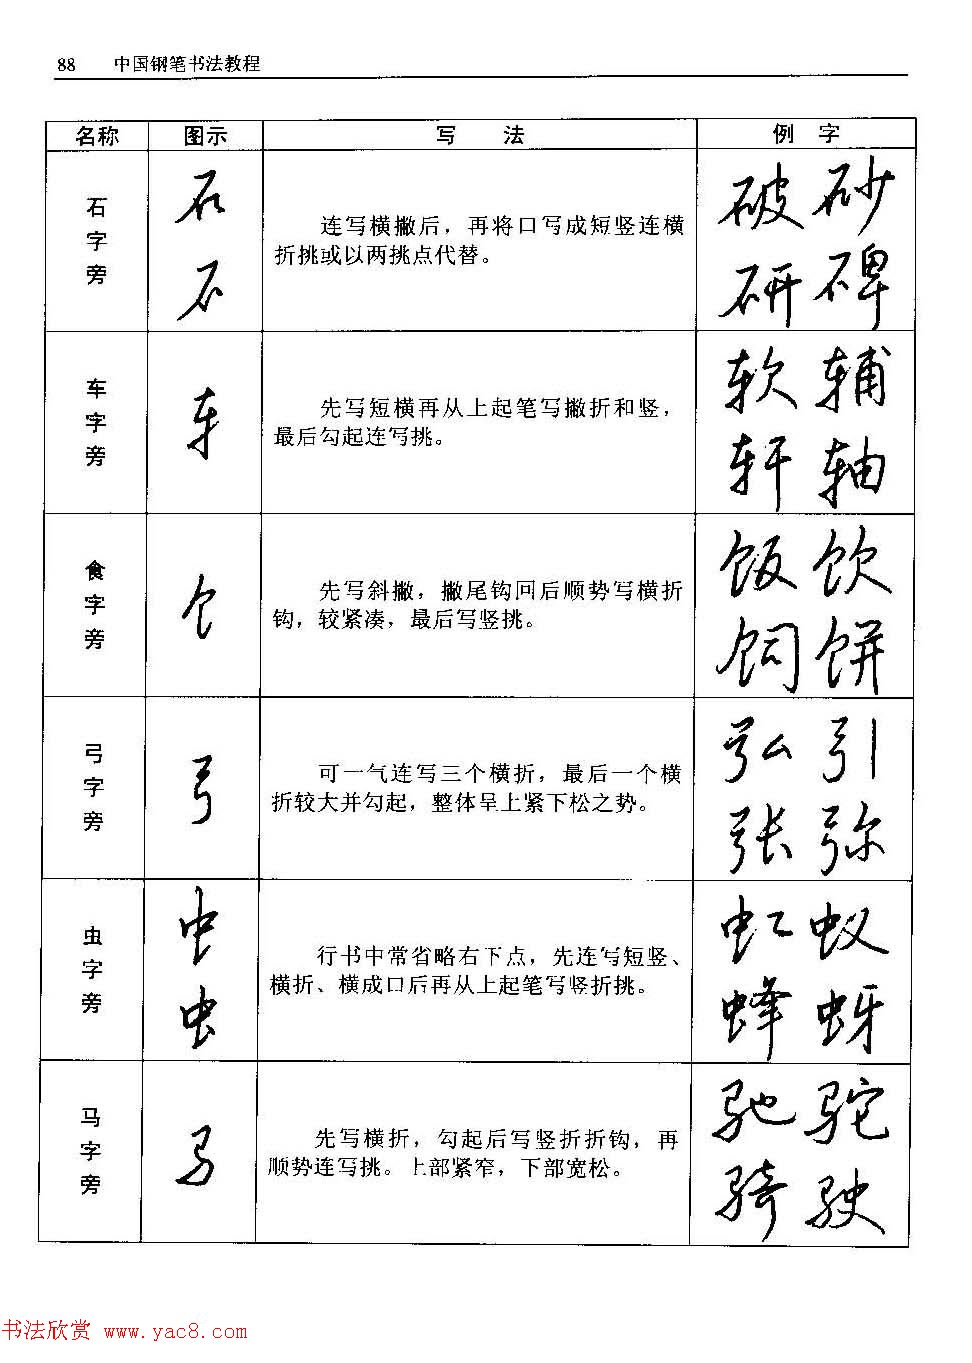 88 中国钢笔书法教程
名称 图示 写 法 例 字
石字旁
石
石
连写横撇后，再将口写成短竖连横
折挑或以两挑点代替。
破 砂
研 碑
车字旁
车
先写短横再从上起笔写撇折和竖，
最后勾起连写挑。
软 辅
轩 轴
食字旁
饣
先写斜撇，撇尾钩回后顺势写横折
钩，较紧凑，最后写竖挑。
饭 饮
饲 饼
弓字旁
弓
可一气连写三个横折，最后一个横
折较大并勾起，整体呈上紧下松之势。
弘 引
张 弥
虫字旁
虫
虫
行书中常省略右下点，先连写短竖、
横折、横成口后再从上起笔写竖折挑。
虹 蚁
蜂 蚜
马字旁
马
先写横折，勾起后写竖折折钩，再
顺势连写挑。上部紧窄，下部宽松。
驰 驼
骑 驶
书法欣赏 www.yac8.com